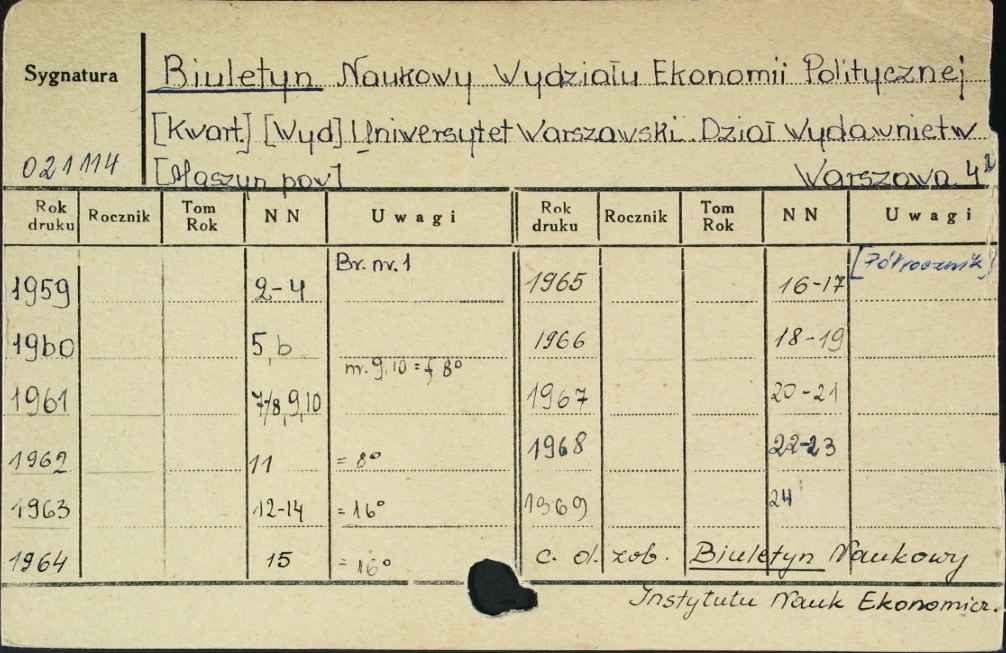 Sygnatura Biuletyn Naukowy Wydziału Ekonomii Politycznej
[Kwart.] [Wyd] Uniwersytet Warszawski. Dział Wydawnictw
021114 [Maszyn pow] Warszawa. 4°
Rok druku Rocznik Tom Rok NN Uwagi Rok druku Rocznik Tom Rok NN Uwagi
1959 2-4 Br. nr. 1 1965 16-17 [Półrocznik]
1960 5,6 1966 18-19
1961 7/8, 9, 10 nr. 9, 10 = f 8° 1967 20-21
1962 11 = 8° 1968 22-23
1963 12-14 = 16° 1969 24
1964 15 = 16° c. d. zob. Biuletyn Naukowy
Instytutu Nauk Ekonomicz.